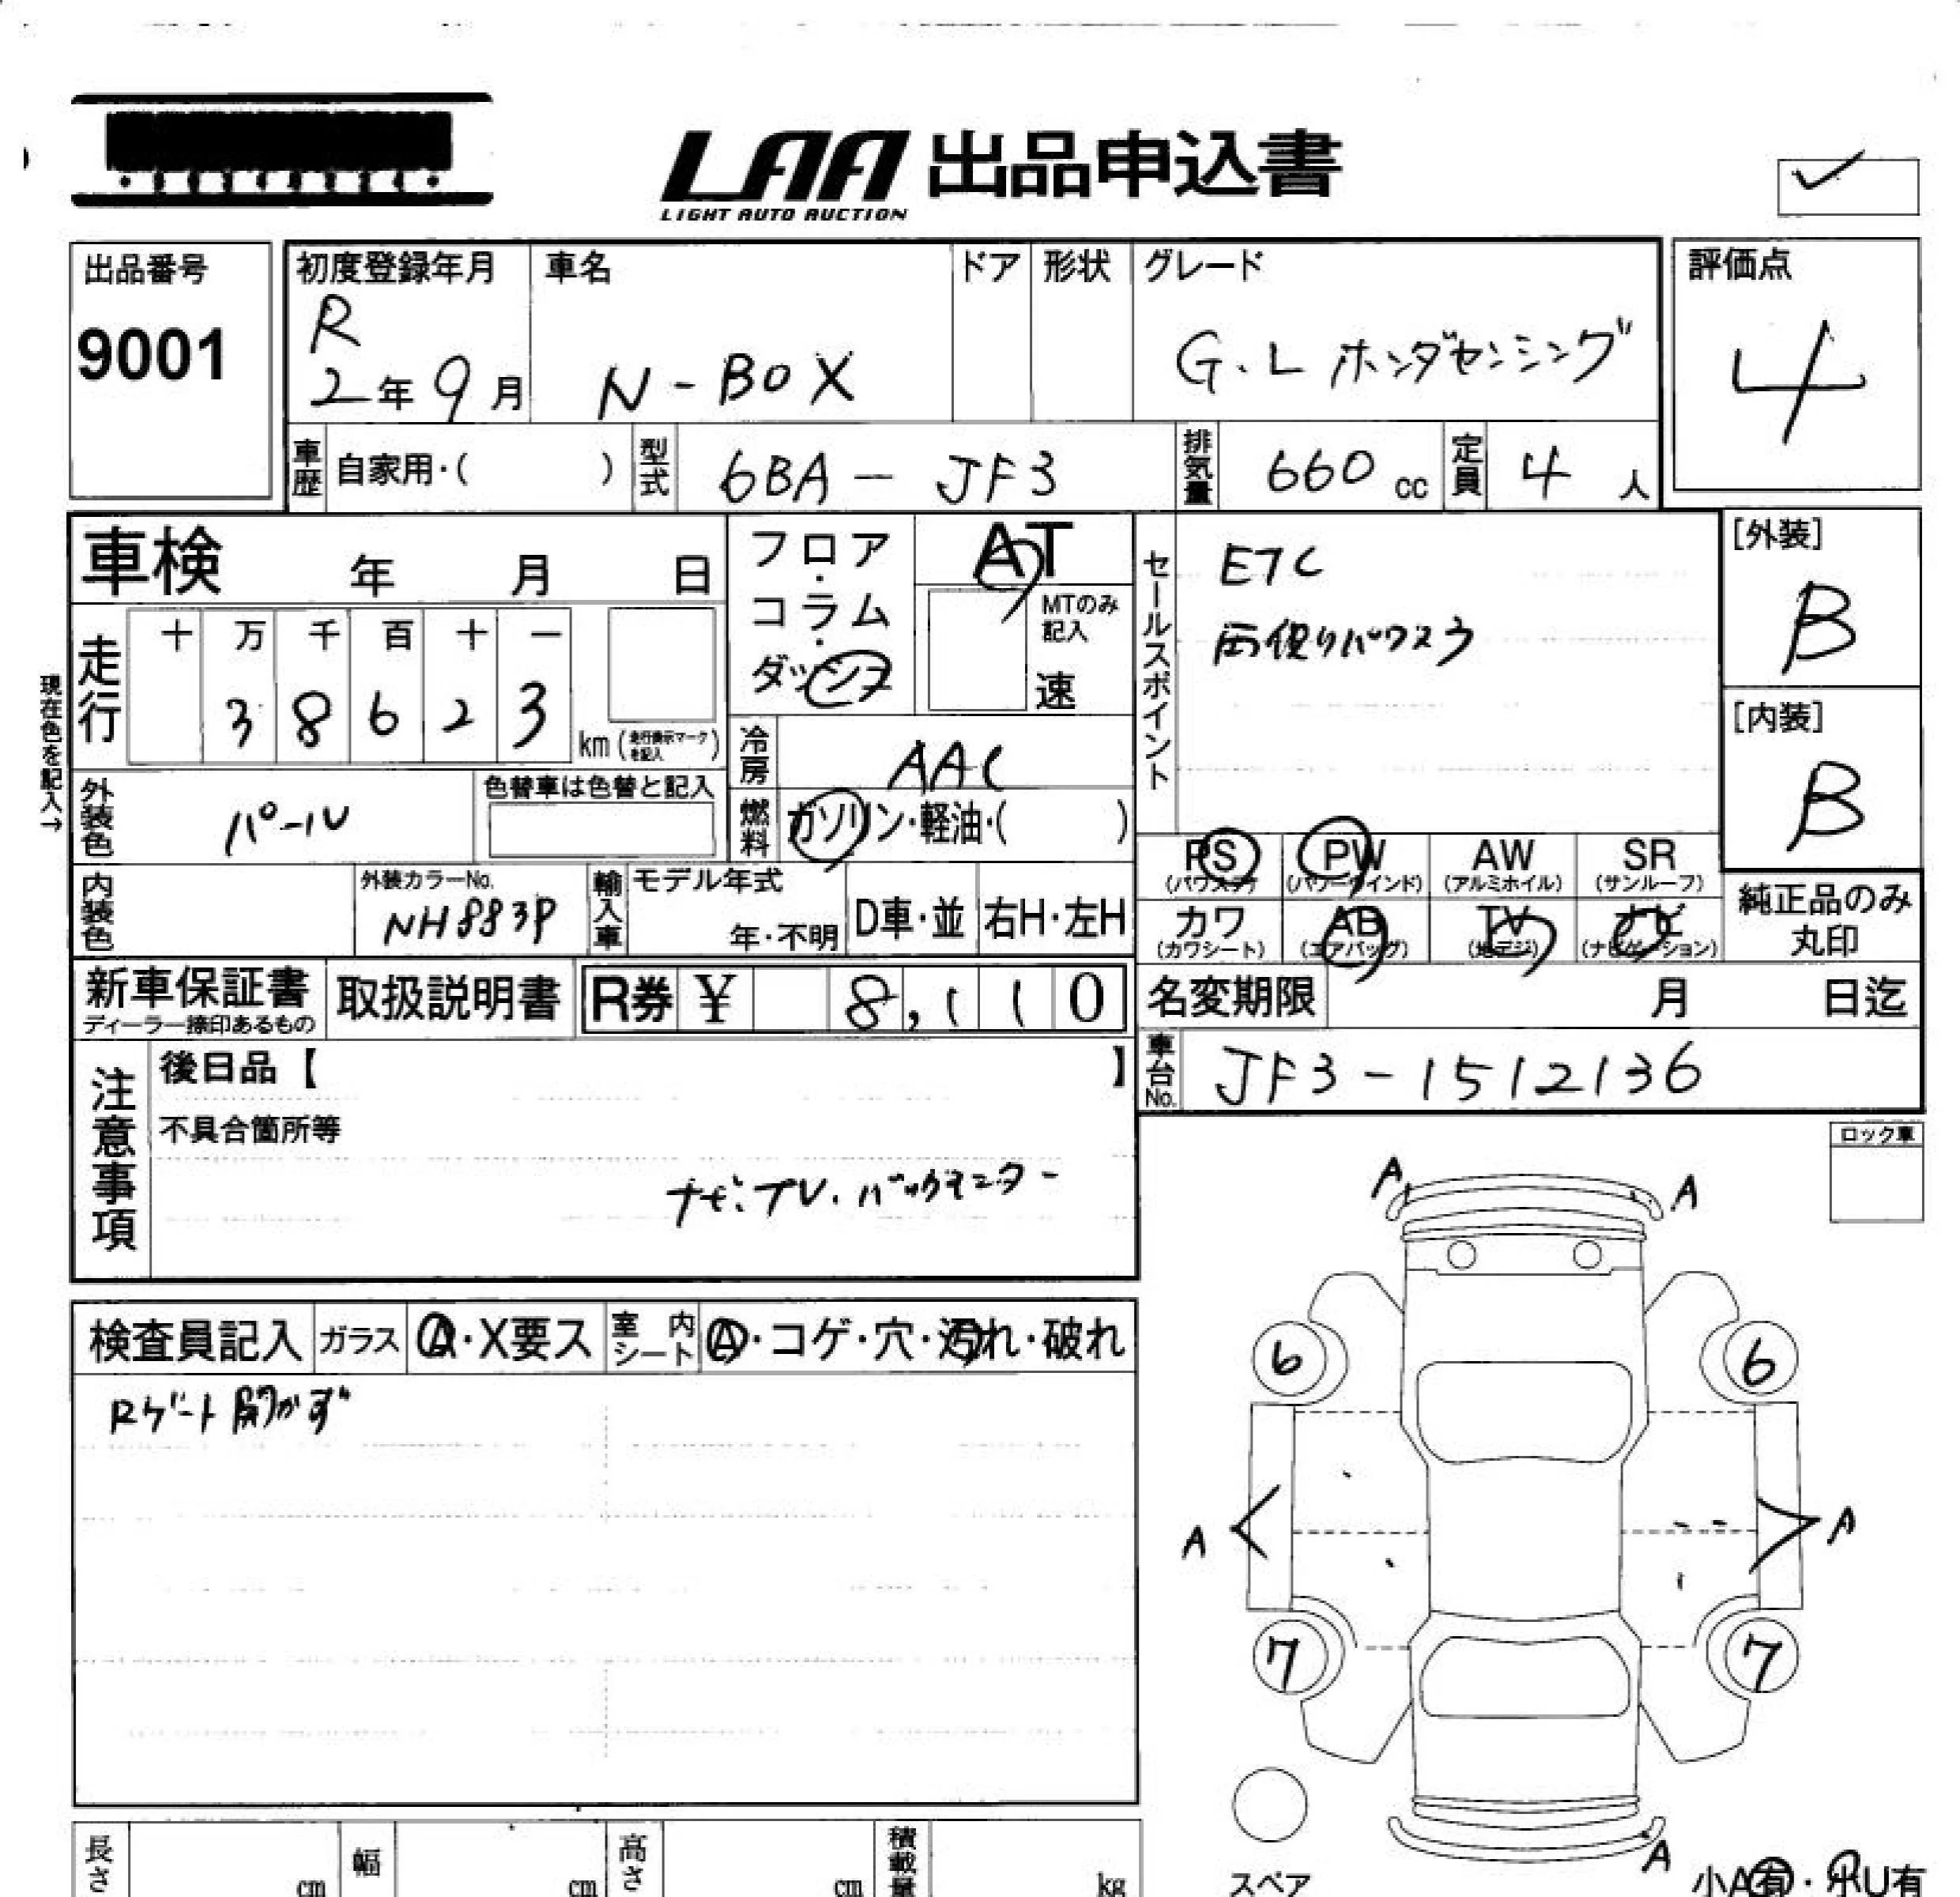 LAA 出品申込書
LIGHT AUTO AUCTION
出品番号
9001
初度登録年月
R
2年9月
車名
N-BOX
ドア
形状
グレード
G・L ホンダセンシング
評価点
4
車歴
自家用・( )
型式
6BA-JF3
排気量
660 cc
定員
4 人
車検 年 月 日
フロア・コラム・ダッシュ
AT
MTのみ記入
速
セールスポイント
ETC
両側パワスラ
[外装]
B
[内装]
B
現在色を記入→
走行
十 万 千 百 十 一
3 8 6 2 3
km (走行表示マークを記入)
冷房
AAC
外装色
パール
色替車は色替と記入
燃料
ガソリン・軽油・( )
PS
(パワステ)
PW
(パワーウインド)
AW
(アルミホイル)
SR
(サンルーフ)
内装色
外装カラーNo.
NH883P
輸入車
モデル年式
年・不明
D車・並
右H・左H
カワ
(カワシート)
AB
(エアバッグ)
TV
(地デジ)
ナビ
(ナビゲーション)
純正品のみ
丸印
新車保証書
ディーラー捺印あるもの
取扱説明書
R券 ¥ 8,110
名変期限 月 日迄
車台No.
JF3-1512136
注意事項
後日品【 】
不具合箇所等
ナビ.TV.バックモニター
ロック車
A A
検査員記入
ガラス
A・X要ス
室内シート
A・コゲ・穴・汚れ・破れ
Rゲート開かず
6 6
A A
7 7
A
スペア
小A有・小U有
長さ cm
幅 cm
高さ cm
積載量 kg